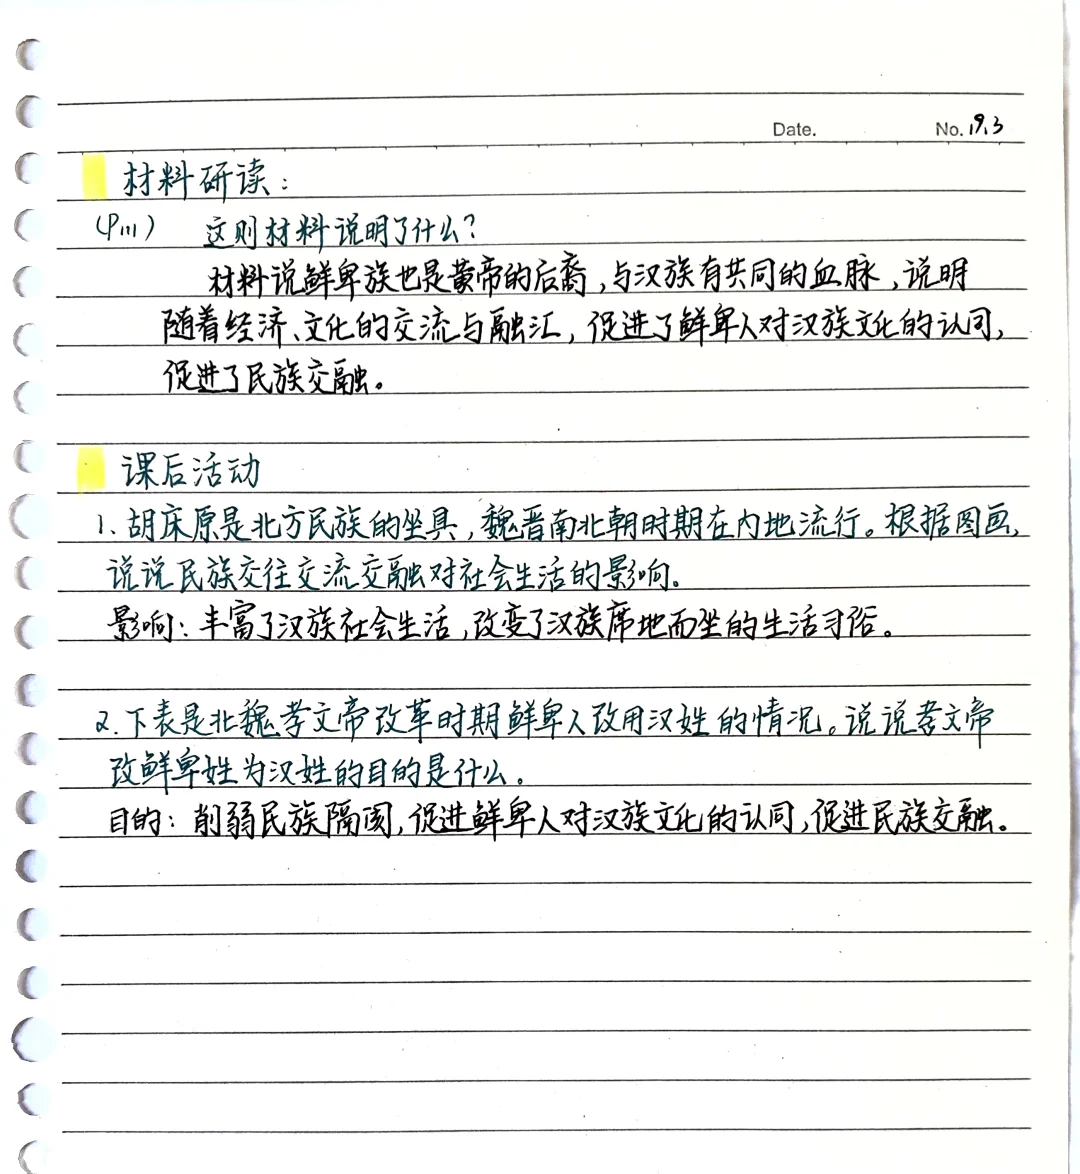 Date. No. 19.3
材料研读：
(P111) 这则材料说明了什么？
材料说鲜卑族也是黄帝的后裔，与汉族有共同的血脉，说明
随着经济、文化的交流与融汇，促进了鲜卑人对汉族文化的认同，
促进了民族交融。
课后活动
1. 胡床原是北方民族的坐具，魏晋南北朝时期在内地流行。根据图画，
说说民族交往交流交融对社会生活的影响。
影响：丰富了汉族社会生活，改变了汉族席地而坐的生活习俗。
2. 下表是北魏孝文帝改革时期鲜卑人改用汉姓的情况。说说孝文帝
改鲜卑姓为汉姓的目的是什么。
目的：削弱民族隔阂，促进鲜卑人对汉族文化的认同，促进民族交融。